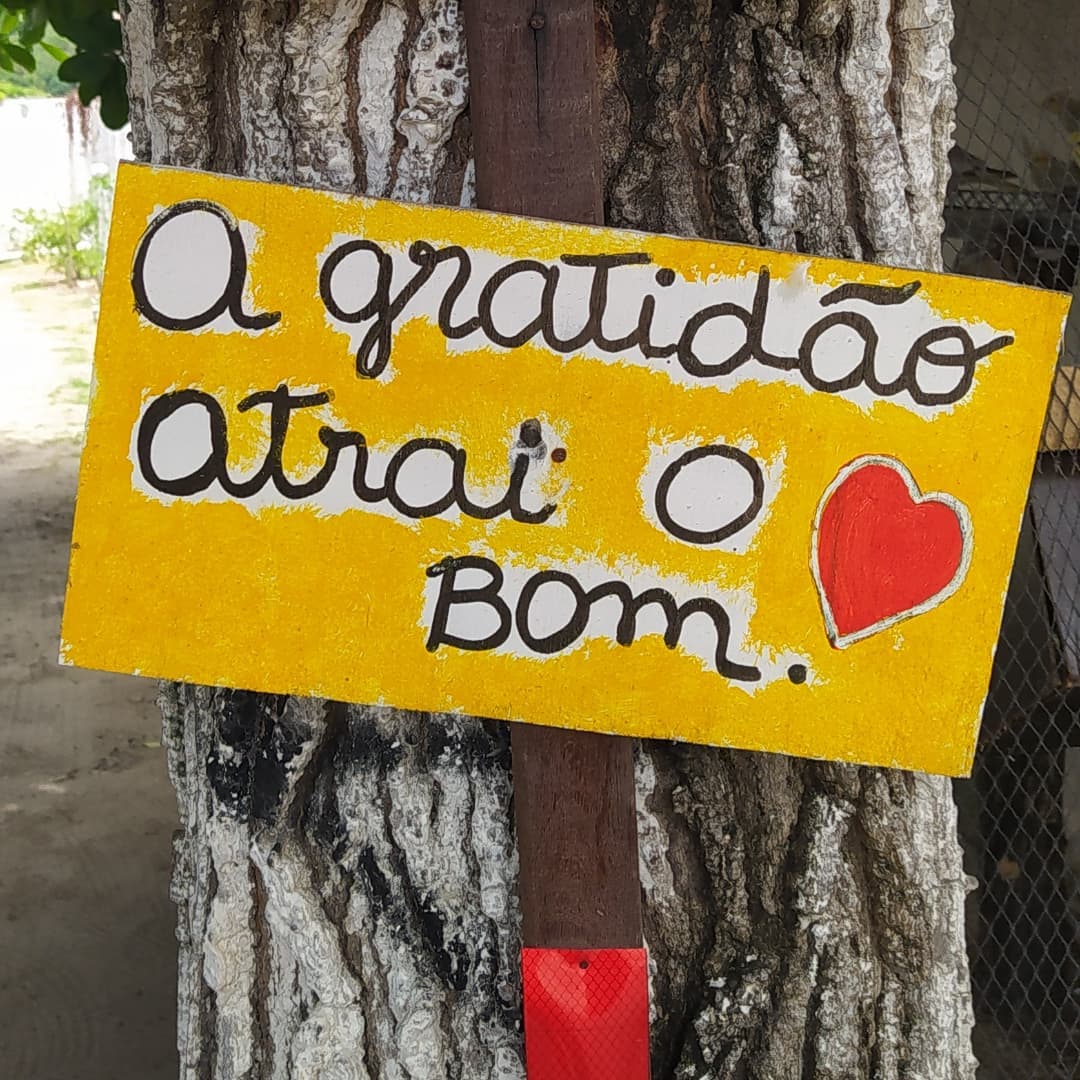 A gratidão
atrai o
Bom.